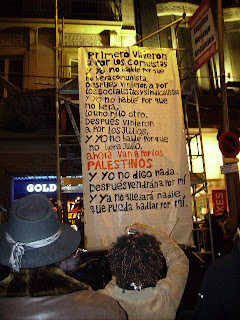 Primero vinieron
a por los comunistas
y yo no hablé porque
no era comunista.
Después vinieron a por
los socialistas y sindicalistas
y yo no hablé porque
no lera,
lo uno ni lo otro.
Después vinieron
a por los judios,
y yo no hable porque
no lera judio.
ahora van a por los
PALESTINOS
y yo no digo nada.
Después vendrán a por mí
y ya no quedará nadie
que pueda hablar por mí.
GOLD